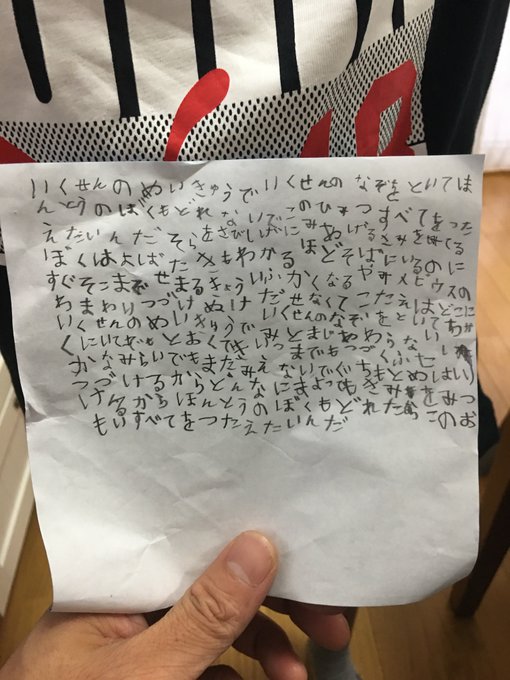 いくせんのめいきゅうでいくせんのなぞをといてほ
んとうのぼくもどれないでこのひみつすべてをつた
えたいんだそらをさびしいがにみあげるきみをみてる
ぼくはよばたきもわかるほどそばにいるのに
すぐそこまでせまるきょういふかくなるやみメビウスの
わまわりつづけぬけだせなくてこたえはどこに
いくせんのめいきゅうでいくせんのなぞをといてちか
くにいてもとおくできみとまじわわらない
かなみらいでもまだみえないでいつまでもつづくふせい
つづけるからどんなにまよってもきみをみつ
けるからほんとうのぼくもどれたらこのお
もいすべてをつたえたいんだ